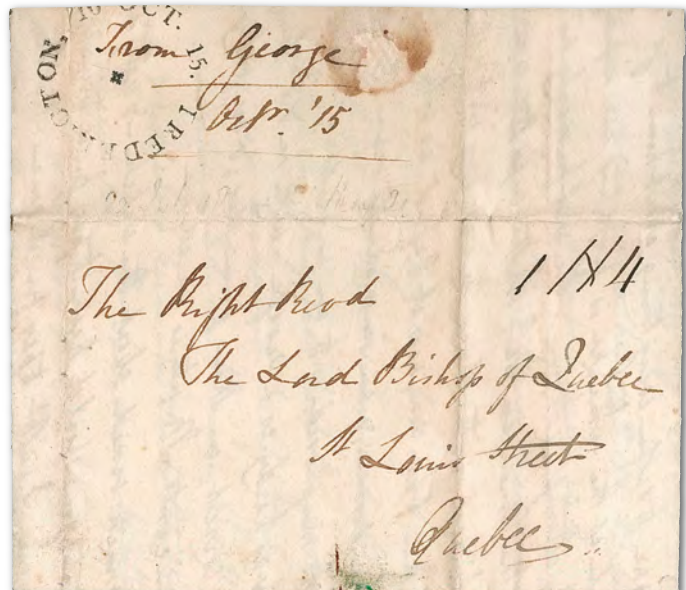 FREDERICTON, 16 OCT. 15.
From George
Octr. '15
The Right Revd
The Lord Bishop of Quebec
St Louis Street
Quebec